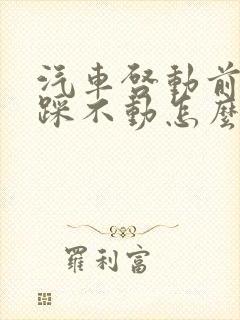 汽車啓動前
踩不動怎麼
羅利富